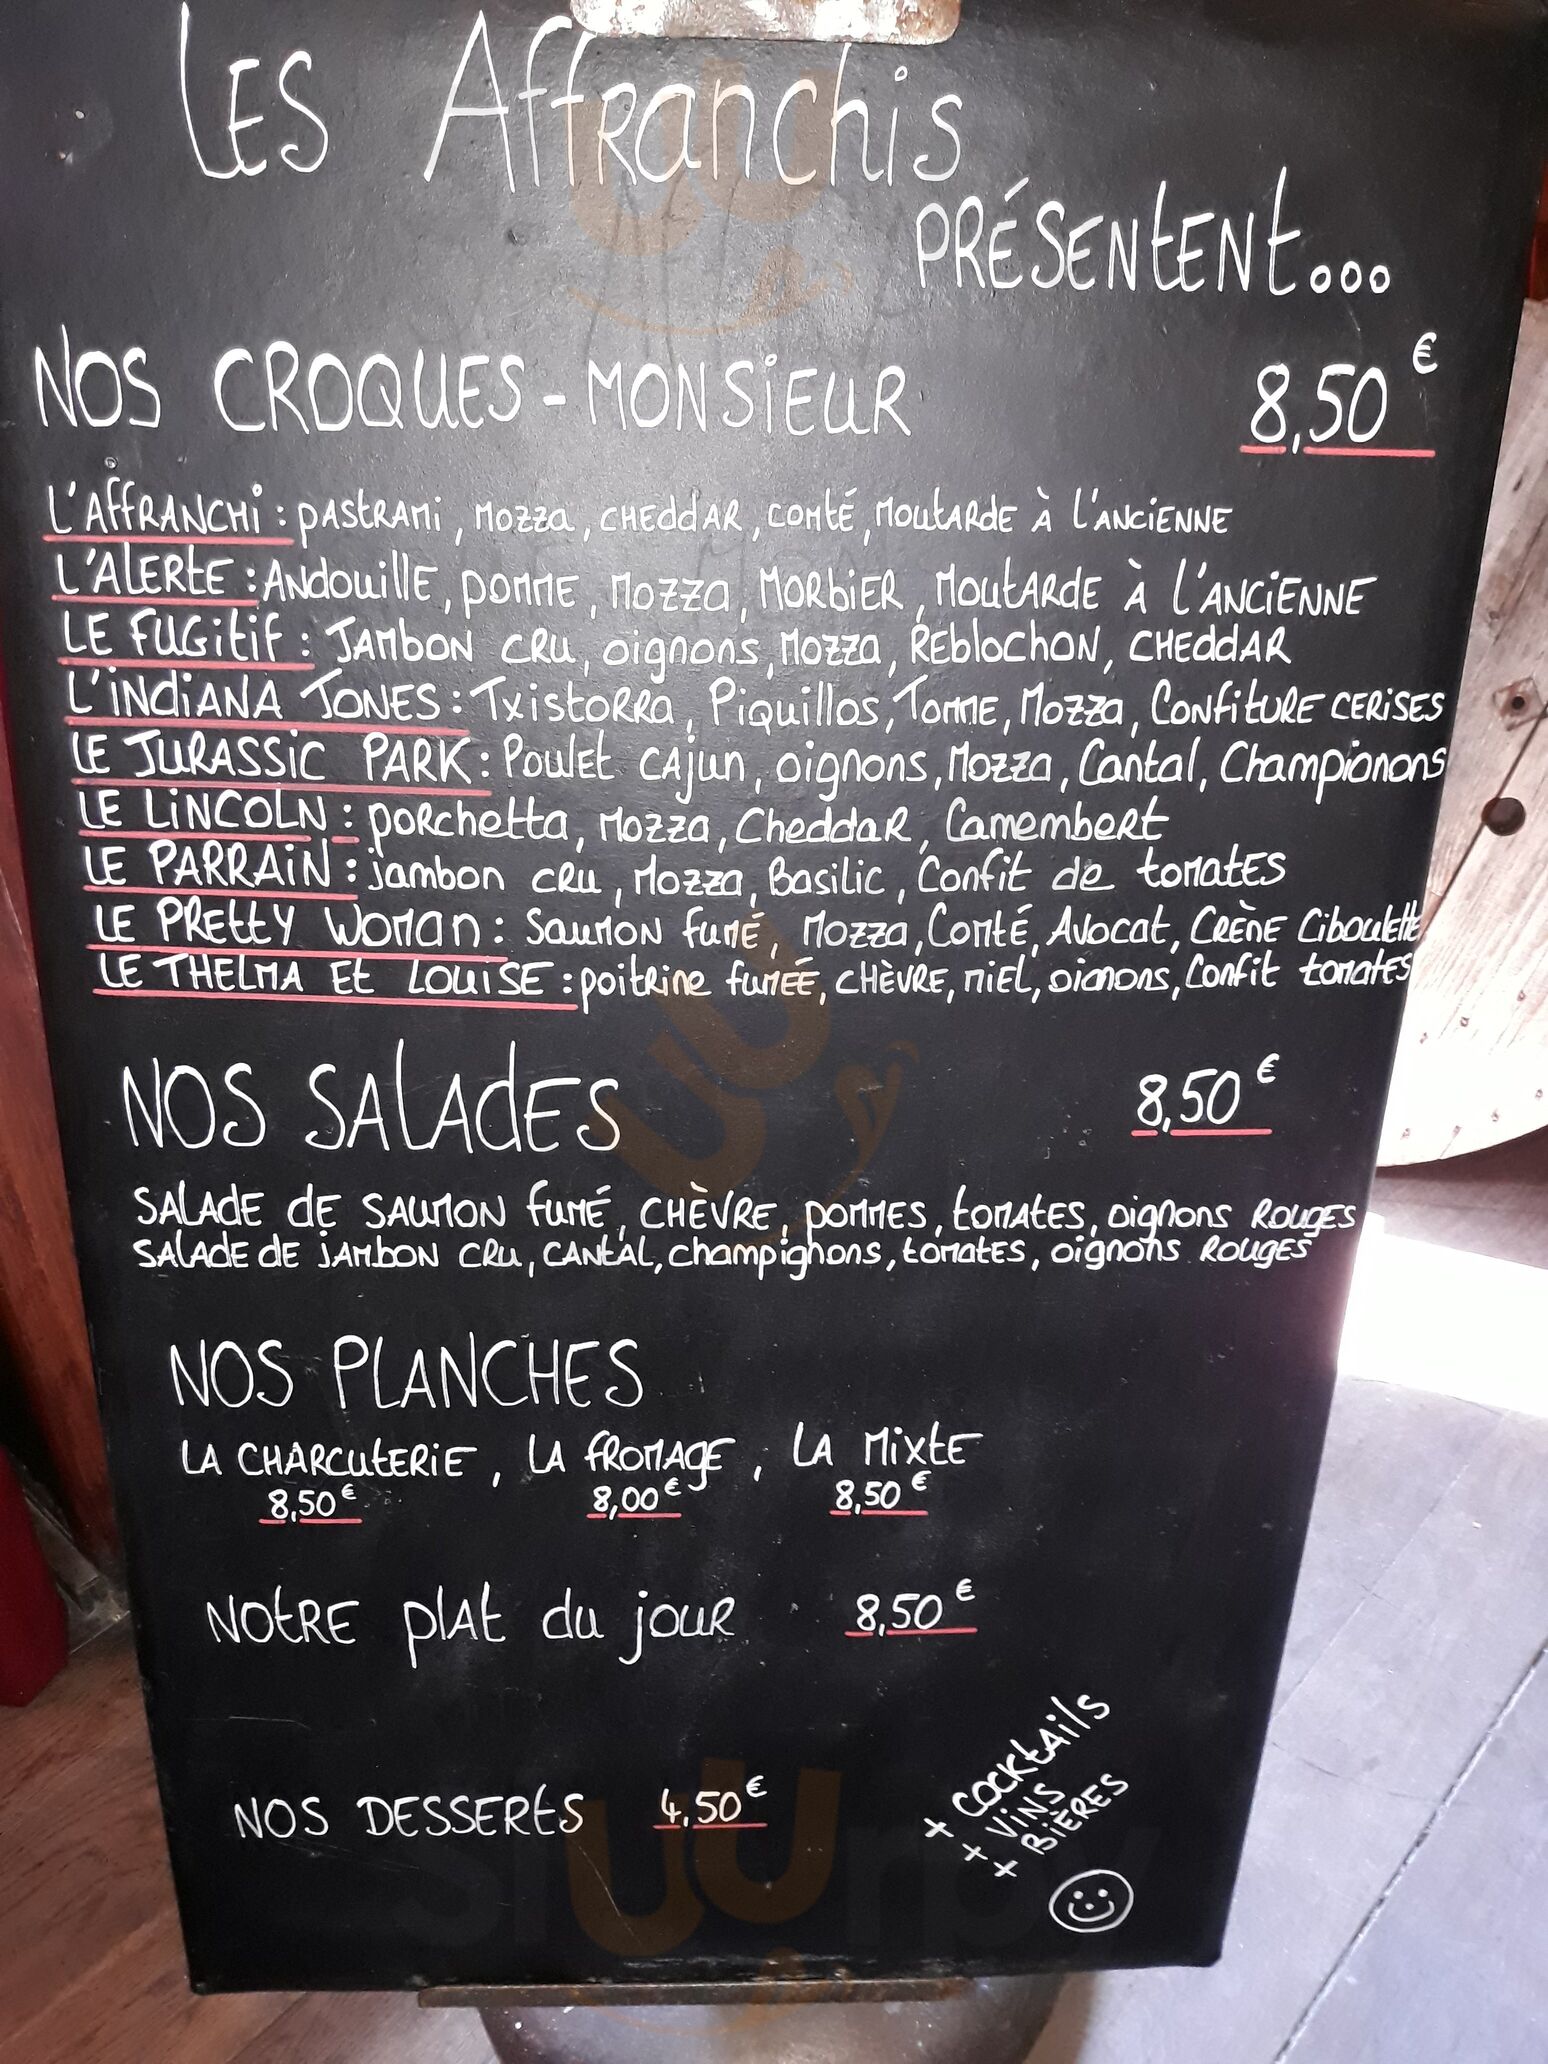 LES Affranchis
PRÉSENTENT...
NOS CROQUES-MONSIEUR 8,50€
L'AFFRANCHI : PASTRAMI, MOZZA, CHEDDAR, COMTÉ, MOUTARDE À L'ANCIENNE
L'ALERTE : ANDOUILLE, POMME, MOZZA, MORBIER, MOUTARDE À L'ANCIENNE
LE FUGITIF : JAMBON CRU, oignons, MOZZA, REBLOCHON, CHEDDAR
L'INDIANA JONES : TXISTORRA, PIQUILLOS, TOMME, MOZZA, CONFITURE CERISES
LE JURASSIC PARK : POULET CAJUN, oignons, MOZZA, Cantal, Champignons
LE LINCOLN : PORCHETTA, MOZZA, CHEDDAR, Camembert
LE PARRAIN : jambon CRU, MOZZA, BASILIC, Confit de TOMATES
LE PRETTY WOMAN : SAUMON FUMÉ, MOZZA, COMTÉ, AVOCAT, CRÈME CIBOULETTE
LE THELMA ET LOUISE : poitrine FUMÉE, CHÈVRE, MIEL, oignons, Confit TOMATES
NOS SALADES 8,50€
SALADE DE SAUMON FUMÉ, CHÈVRE, POMMES, TOMATES, oignons ROUGES
SALADE DE JAMBON CRU, CANTAL, champignons, TOMATES, oignons ROUGES
NOS PLANCHES
LA CHARCUTERIE, LA FROMAGE, LA MIXTE
8,50€ 8,00€ 8,50€
NOTRE PLAT du jour 8,50€
NOS DESSERTS 4,50€
+ COCKTAILS
+ VINS
+ BIÈRES
sluurpy